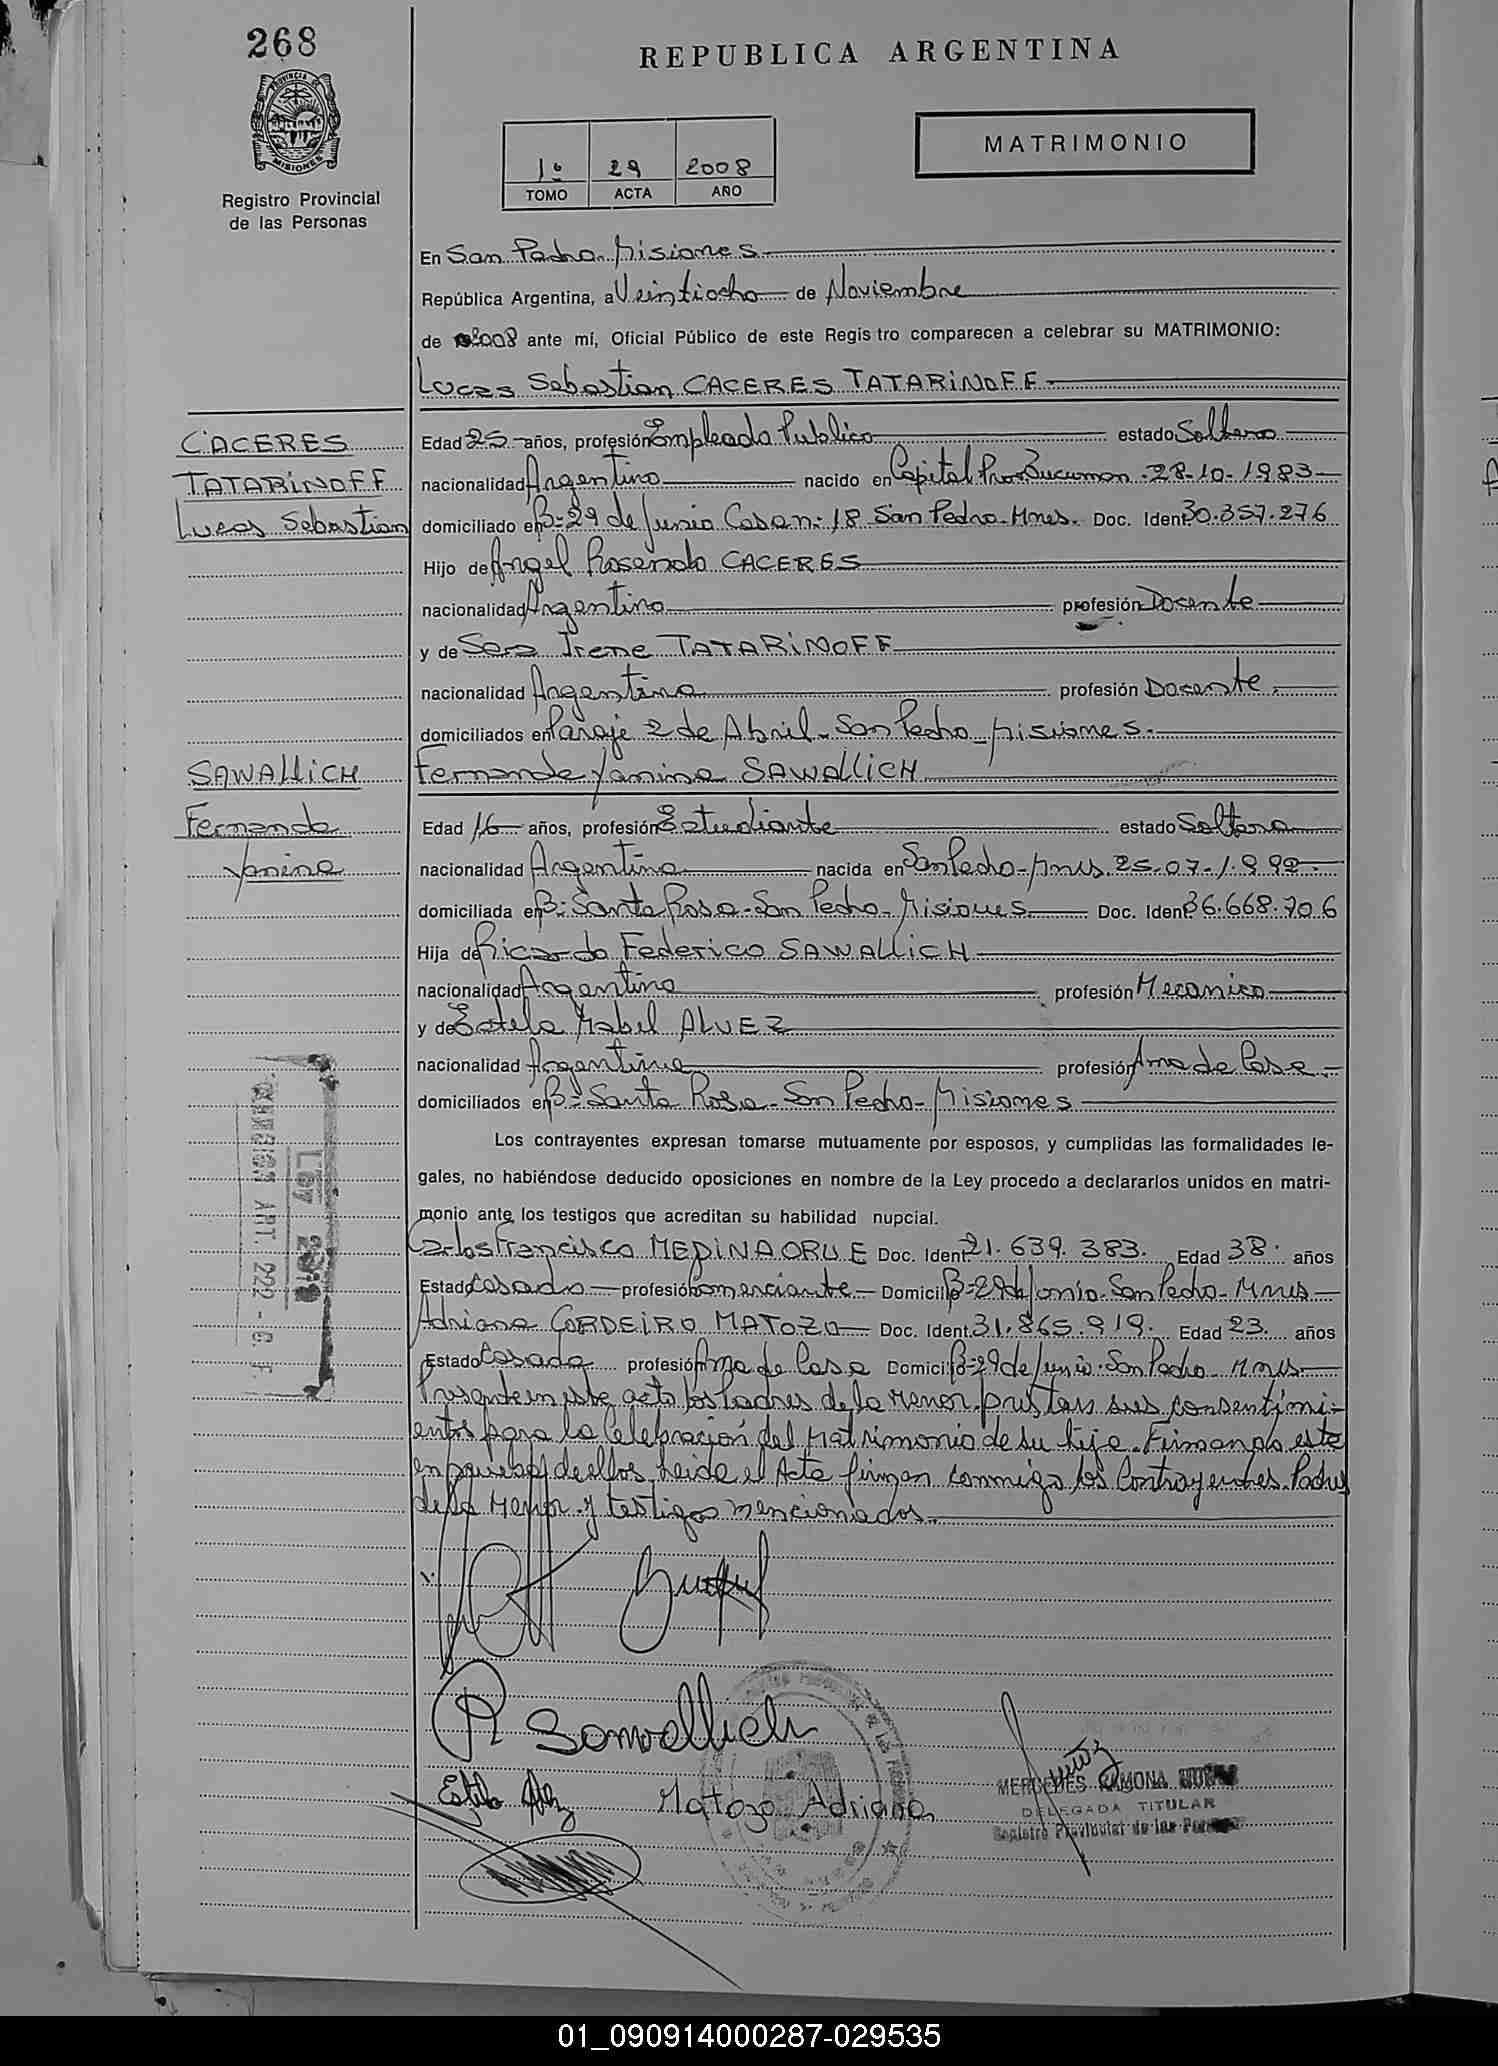 268
PROVINCIA DE
MISIONES
Registro Provincial
de las Personas
REPUBLICA ARGENTINA
1º 29 2008
TOMO ACTA AÑO
MATRIMONIO
En San Pedro Misiones
República Argentina, a Veintiocho de Noviembre
de 2008 ante mí, Oficial Público de este Registro comparecen a celebrar su MATRIMONIO:
Lucas Sebastian CACERES TATARINOFF
CACERES
TATARINOFF
Lucas Sebastian
Edad 25 años, profesión Empleado Publico estado Soltero
nacionalidad Argentino nacido en Capital Prov. Tucuman 28-10-1983
domiciliado en Bº 29 de Junio Casa n: 18 San Pedro Mnes. Doc. Ident 30.357.276
Hijo de Angel Rosendo CACERES
nacionalidad Argentino profesión Docente
y de Sara Irene TATARINOFF
nacionalidad Argentina profesión Docente
domiciliados en Paraje 2 de Abril San Pedro Misiones.
SAWALLICH
Fernanda
Yanina
Fernanda Yanina SAWALLICH
Edad 16 años, profesión Estudiante estado Soltera
nacionalidad Argentina nacida en San Pedro Mnes. 25-07-1992
domiciliada en Bº Santa Rosa San Pedro Misiones Doc. Ident 36.668.706
Hija de Ricardo Federico SAWALLICH
nacionalidad Argentino profesión Mecanico
y de Estela Mabel ALVEZ
nacionalidad Argentina profesión Ama de Casa
domiciliados en Bº Santa Rosa San Pedro Misiones
Los contrayentes expresan tomarse mutuamente por esposos, y cumplidas las formalidades le-
gales, no habiéndose deducido oposiciones en nombre de la Ley procedo a declararlos unidos en matri-
monio ante los testigos que acreditan su habilidad nupcial.
Carlos Francisco MEDINA ORUE Doc. Ident. 21.639.383. Edad 38 años
Estado Casado profesión Comerciante Domicilio Bº 29 de Junio San Pedro Mnes
Adriana CORDEIRO MATOZO Doc. Ident. 31.865.919. Edad 23 años
Estado Casada profesión Ama de Casa Domicilio Bº 29 de Junio San Pedro Mnes
Presente en este acto los Padres de la Menor prestan sus consentimi-
entos para la Celebracion del Matrimonio de su hija. Firmando esta
en prueba de ellos leida el Acta firman conmigo los Contrayentes. Padres
de la Menor y testigos mencionados.
ART. 222 - C. F.
R Sawallich
Estela Alvez
Matozo Adriana
MERCEDES RAMONA
DELEGADA TITULAR
Registro Provincial de las Personas
01_090914000287-029535